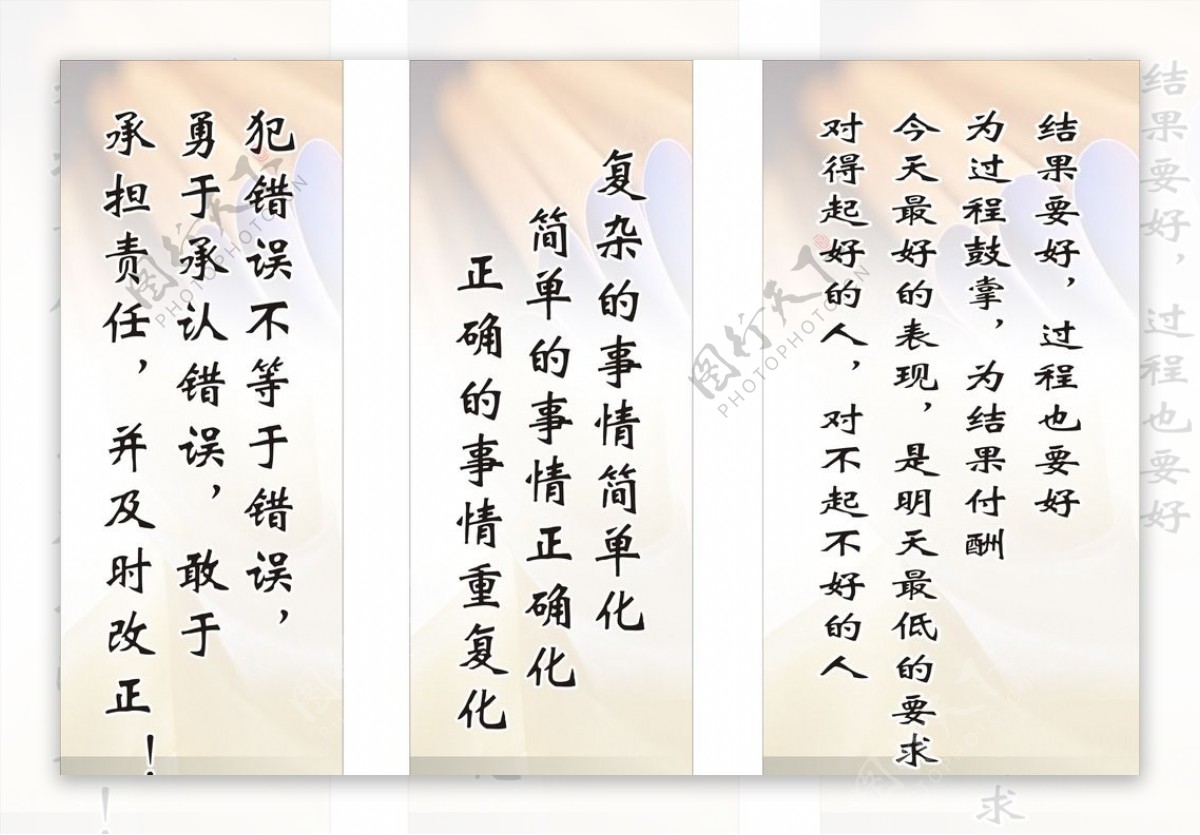 犯错误不等于错误，
勇于承认错误，敢于
承担责任，并及时改正！
复杂的事情简单化
简单的事情正确化
正确的事情重复化
结果要好，过程也要好
为过程鼓掌，为结果付酬
今天最好的表现，是明天最低的要求
对得起好的人，对不起不好的人
图行天下
PHOTOPHOTO.CN
图行天下
PHOTOPHOTO.CN
结果要好，过程也要好
求